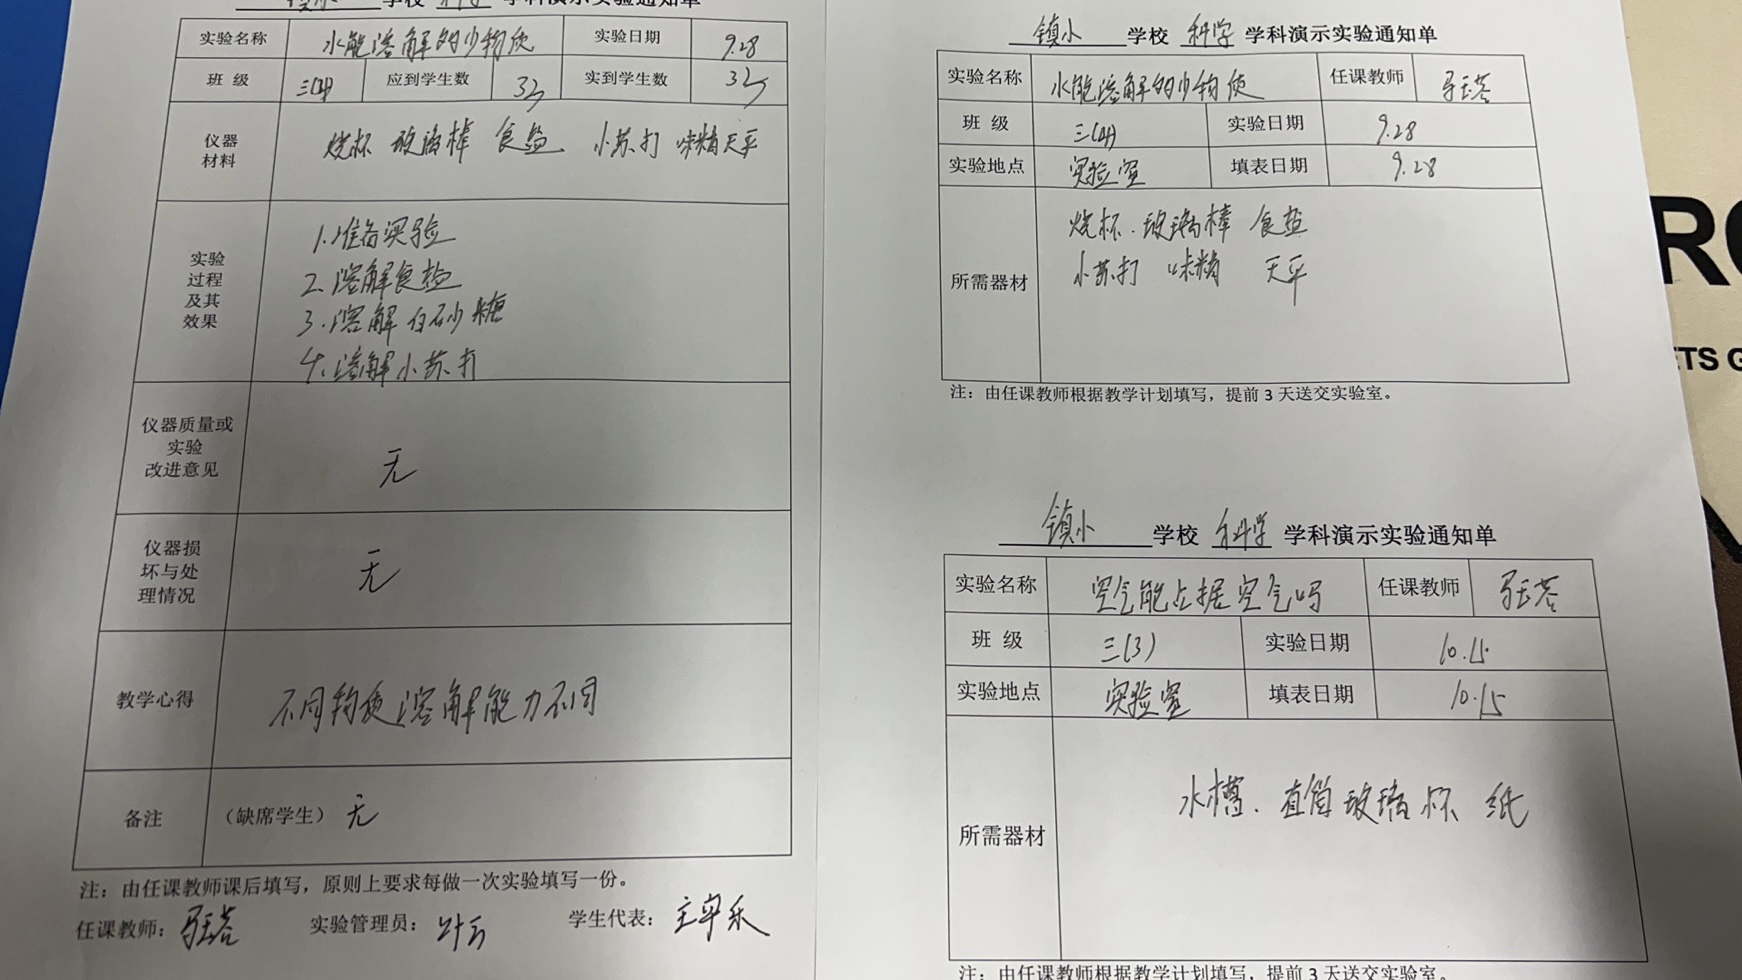 镇小 学校 科学 学科演示实验通知单
实验名称 水能溶解的少物质 实验日期 9.28
班 级 三(4) 应到学生数 35 实到学生数 35
仪器材料 烧杯 玻璃棒 食盐 小苏打 味精 天平
实验过程及其效果
1.准备实验
2.溶解食盐
3.溶解白砂糖
4.溶解小苏打
仪器质量或实验改进意见 无
仪器损坏与处理情况 无
教学心得 不同物质溶解能力不同
备注 (缺席学生) 无
注:由任课教师课后填写,原则上要求每做一次实验填写一份。
任课教师: 实验管理员: 学生代表:
镇小 学校 科学 学科演示实验通知单
实验名称 水能溶解的少物质 任课教师
班 级 三(4) 实验日期 9.28
实验地点 实验室 填表日期 9.28
所需器材 烧杯.玻璃棒 食盐
小苏打 味精 天平
注:由任课教师根据教学计划填写,提前 3 天送交实验室。
镇小 学校 科学 学科演示实验通知单
实验名称 空气能占据空气吗 任课教师
班 级 三(3) 实验日期 10.15
实验地点 实验室 填表日期 10.15
所需器材 水槽.直筒玻璃杯 纸
注:由任课教师根据教学计划填写,提前 3 天送交实验室。